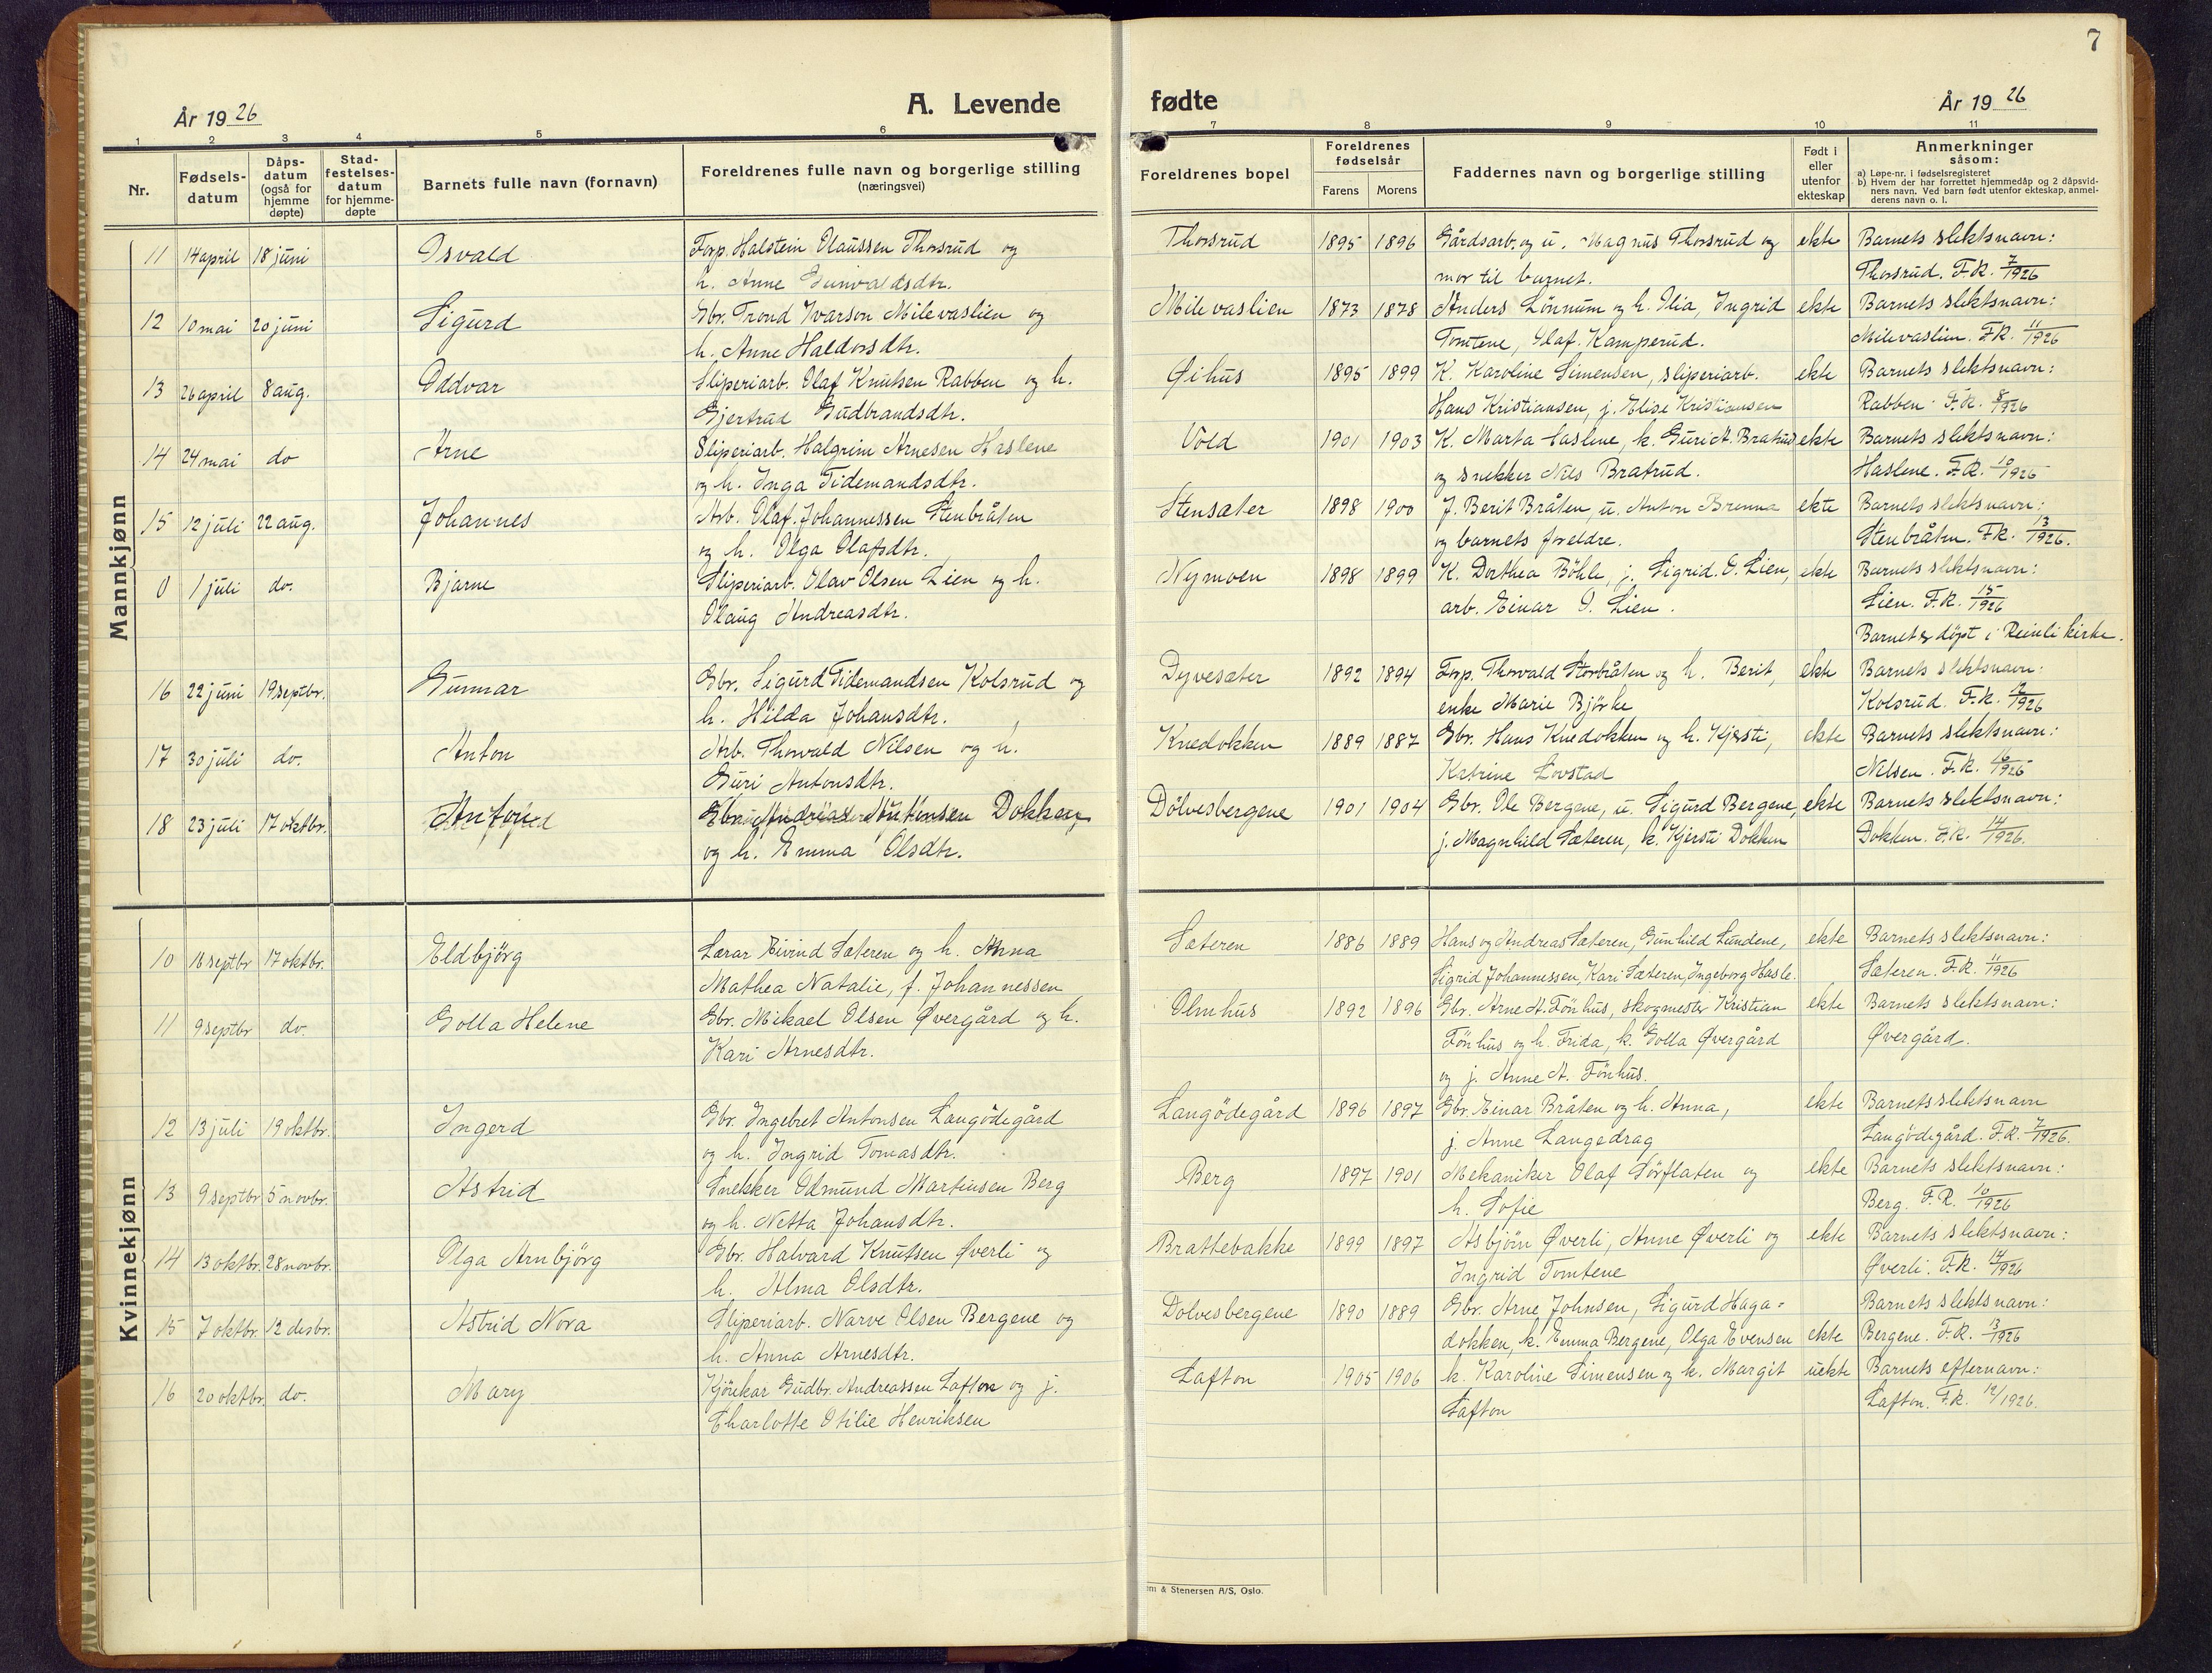 7
År 1926
A. Levende
fødte
År 1926
1 2 3 4 5 6 7 8 9 10 11
Nr.
Fødsels-
datum
Dåps-
datum
(også for
hjemme
døpte)
Stad-
festelses-
datum
for hjemme-
døpte
Barnets fulle navn (fornavn)
Foreldrenes fulle navn og borgerlige stilling
(næringsvei)
Foreldrenes bopel
Foreldrenes
fødselsår
Farens Morens
Faddernes navn og borgerlige stilling
Født i
eller
utenfor
ekteskap
Anmerkninger
såsom:
a) Løpe-nr. i fødselsregisteret
b) Hvem der har forrettet hjemmedåp og 2 dåpsvid-
ners navn. Ved barn født utenfor ekteskap, anmel-
derens navn o. l.
Mannkjønn
11 14 april 18 juni Osvald Forp. Halstein Olaussen Thorsrud og Thorsrud 1895 1896 Gårdsarb. og u. Magnus Thorsrud og ekte Barnets slektsnavn:
h. Anne Gunvaldsdtr. mor til barnet. Thorsrud. F.R. 7/1926
12 10 mai 20 juni Sigurd Gbr. Trond Ivarson Milevaslien og Milevaslien 1873 1878 Anders Lönnum og h. Olia, Ingrid ekte Barnets slektsnavn:
h. Anne Haldorsdtr. Tomtene, Olaf Kamperud. Milevaslien. F.R. 11/1926
13 26 april 8 aug. Oddvar Sliperiarb. Olaf Knutsen Rabben og h. Øihus 1895 1899 K. Karoline Simensen, sliperiarb. ekte Barnets slektsnavn:
Gjertrud Gudbrandsdtr. Hans Kristiansen, j. Elise Kristiansen Rabben. F.R. 8/1926
14 24 mai do Arne Sliperiarb. Halgrim Arnesen Haslene Vold 1901 1903 K. Marta Haslene, k. Guri A. Bratrud ekte Barnets slektsnavn:
og h. Inga Tidemandsdtr. og snekker Nils Bratrud. Haslene. F.R. 10/1926
15 12 juli 22 aug. Johannes Arb. Olaf Johannessen Stenbråten Stensæter 1898 1900 J. Berit Bråten, u. Anton Brenna ekte Barnets slektsnavn:
og h. Olga Olafsdtr. og barnets foreldre. Stenbråten. F.R. 13/1926.
0 1 juli do. Bjarne Sliperiarb. Olav Olsen Lien og h. Nymoen 1898 1899 K. Dorthea Böhle, j. Sigrid O. Lien, ekte Barnets slektsnavn:
Olaug Andreasdtr. arb. Einar O. Lien. Lien. F.R. 15/1926
Barnet er döpt i Reinli kirke.
16 22 juni 19 septbr. Gunnar Gbr. Sigurd Tidemandsen Kolsrud og Dyvesæter 1892 1894 Forp. Thorvald Storbråten og h. Berit, ekte Barnets slektsnavn:
h. Hilda Johansdtr. enke Marie Björke Kolsrud. F.R. 12/1926
17 30 juli do. Anton Arb. Thorvald Nilsen og h. Knedokken 1889 1887 Gbr. Hans Knedokken og h. Kjersti, ekte Barnets slektsnavn:
Guri Antonsdtr. Katrine Lovstad Nilsen. F.R. 16/1926
18 23 juli 17 oktbr. Anfind Gbr. Andreas Dokken Dölvesbergene 1901 1904 Gbr. Ole Bergene, u. Sigurd Bergene, ekte Barnets slektsnavn:
og h. Emma Olsdtr. j. Magnhild Sæteren, k. Kjersti Dokken Dokken. F.R. 14/1926.
Kvinnekjønn
10 18 septbr 17 oktbr. Eldbjörg Lærar Eivind Sæteren og h. Anna Sæteren 1886 1889 Hans og Andreas Sæteren, Gunhild Lundene, ekte Barnets slektsnavn:
Mathea Natalie, f. Johannessen Sigrid Johannessen, Kari Sæteren, Ingeborg Hasle. Sæteren. F.R. 11/1926
11 9 septbr do. Golla Helene Gbr. Mikael Olsen Øvergård og h. Olmhus 1892 1896 Gbr. Arne A. Fönhus, skogmester Kristian ekte Barnets slektsnavn:
Kari Arnesdtr. Fönhus og h. Frida, k. Golla Øvergård Øvergård.
og j. Anne A. Fönhus.
12 13 juli 19 oktbr. Ingerd Gbr. Ingebret Antonsen Langödegård Langödegård 1896 1897 Gbr. Einar Bråten og h. Anna, ekte Barnets slektsnavn
og h. Ingrid Tomasdtr. j Anne Langedrag Langödegård. F.R. 7/1926.
13 9 septbr 5 novbr. Astrid Snekker Edmund Martinsen Berg Berg 1897 1901 Mekaniker Olaf Sörflaten og ekte Barnets slektsnavn:
og h. Netta Johansdtr. h. Sofie Berg. F.R. 10/1926
14 13 oktbr. 28 novbr. Olga Arnbjörg Gbr. Halvard Knutsen Øverli og Brattebakke 1899 1897 Asbjörn Øverli, Anne Øverli og ekte Barnets slektsnavn:
h. Alma Olsdtr. Ingrid Tomtene Øverli. F.R. 14/1926
15 7 oktbr. 12 desbr. Astrid Nora Sliperiarb. Narve Olsen Bergene og Dölvesbergene 1890 1889 Gbr. Arne Johnsen, Sigurd Haga- Barnets slektsnavn:
h. Anna Arnesdtr. dokken, k. Emma Bergene, Olga Evensen ekte Bergene. F.R. 13/1926
16 20 oktbr. do. Mary Kjörekar Gudbr. Andreassen Lafton og j. Lafton 1905 1906 k. Karoline Simensen og k. Margit uekte Barnets efternavn:
Charlotte Otilie Henriksen Lafton Lafton. F.R. 12/1926.
& Stenersen A/S, Oslo.